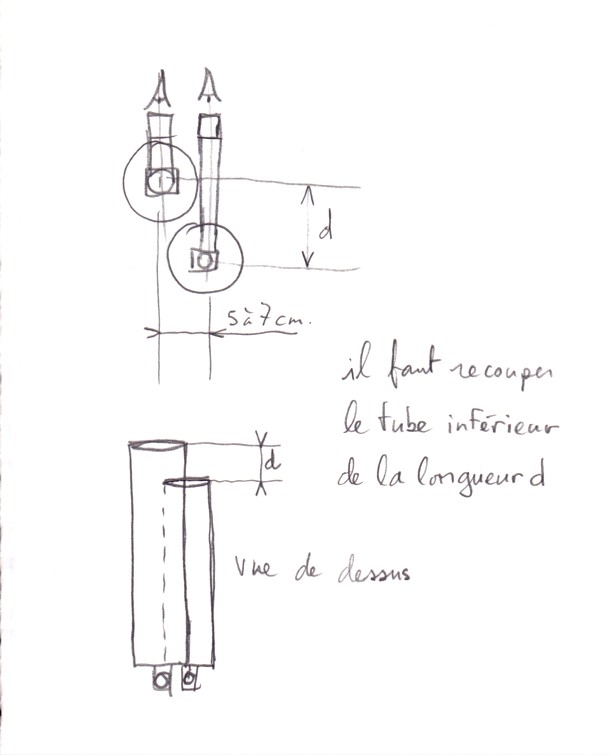 d
5 à 7 cm.
il faut recouper
le tube inférieur
d
de la longueur d
vue de dessus